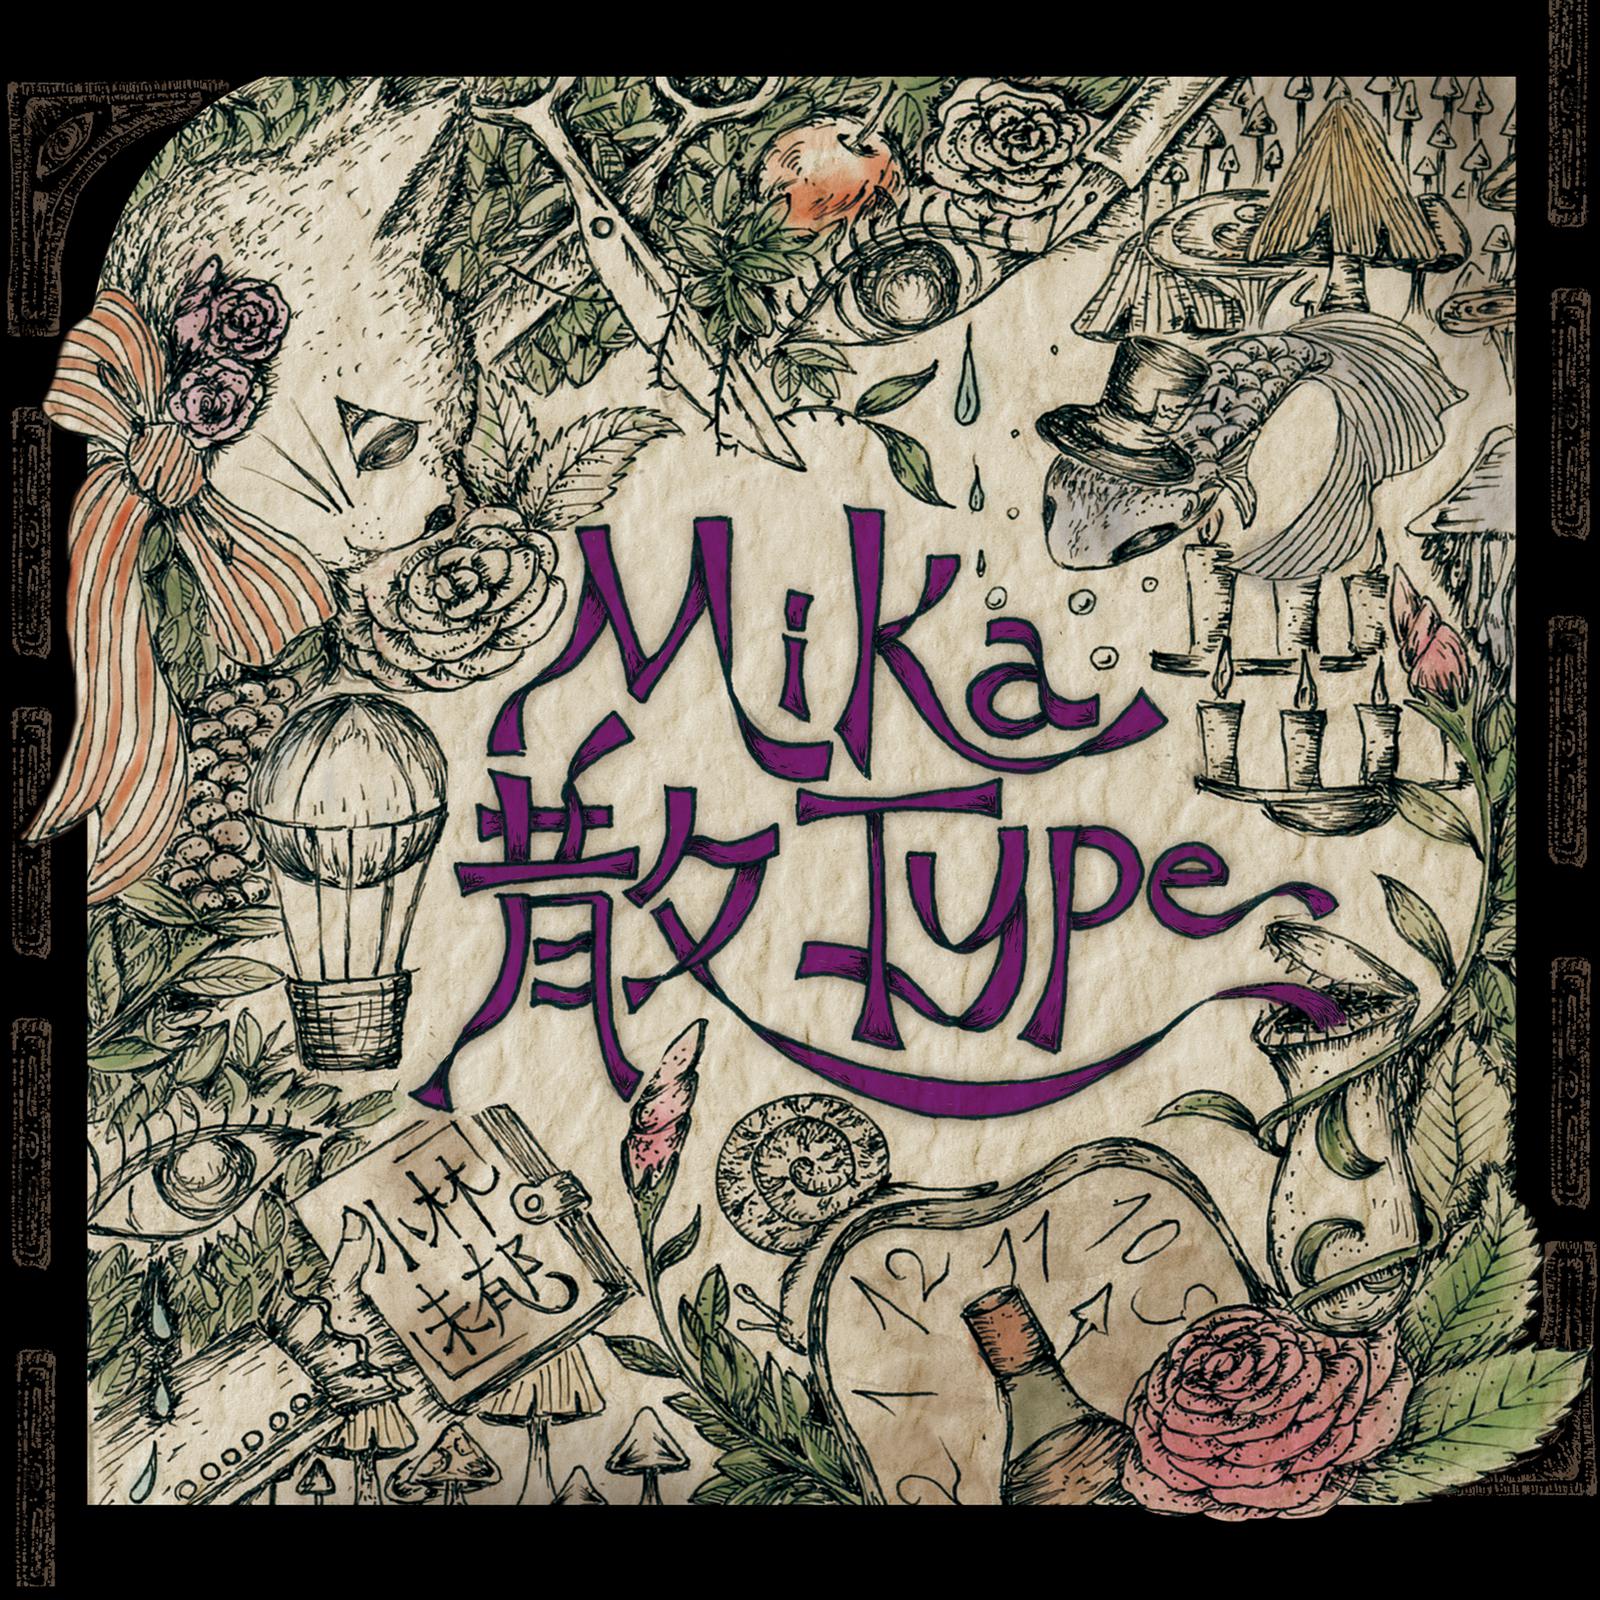 Mika
散Type
小林
未郁
12 11 10
1
2